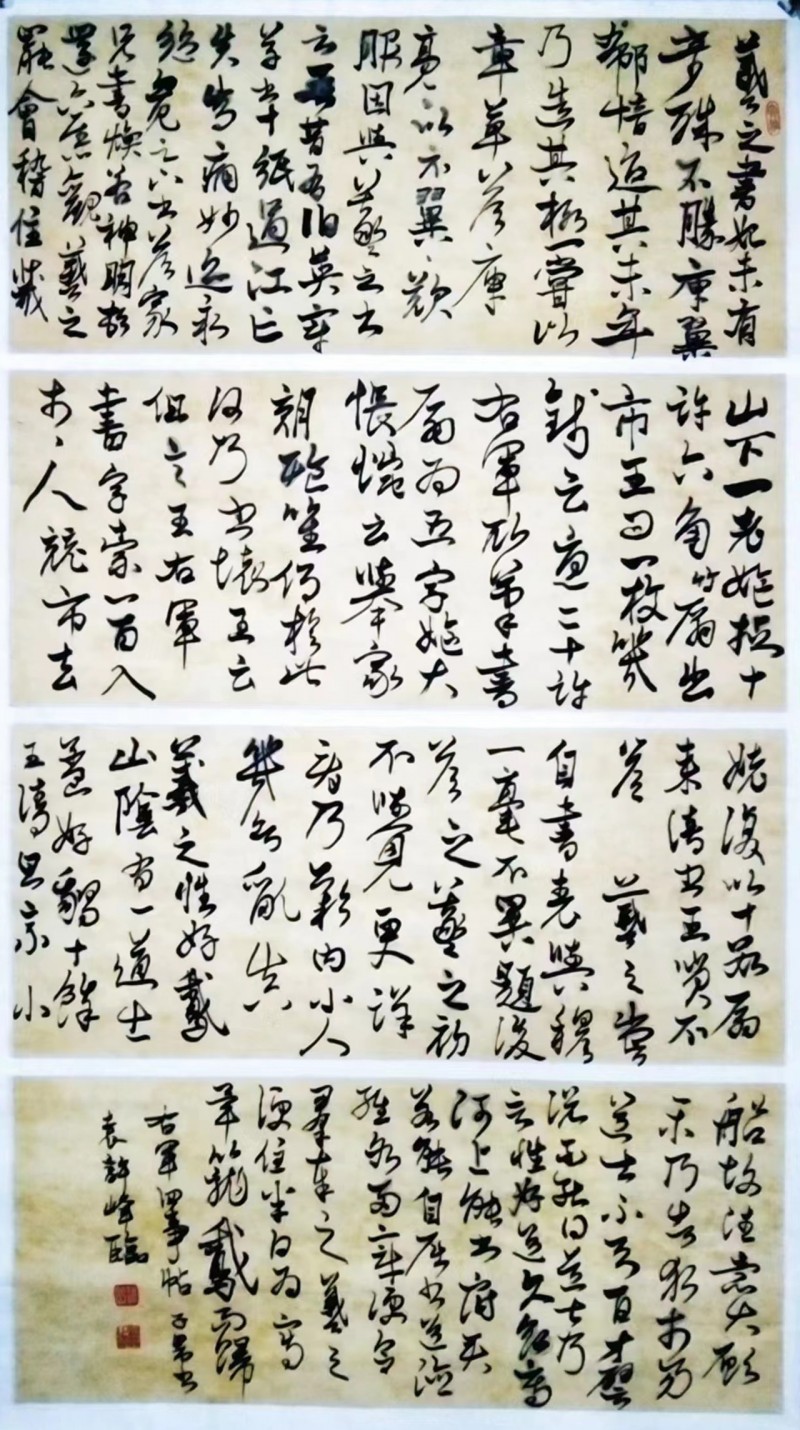 羲之書初未有
奇殊不勝庾翼
郗愔迨其末年
乃造其極嘗以
章草答庾
亮亮以示翼翼歎
服因與羲之書
云吾昔有伯英章
草書十紙過江亡
失常痛妙迹永
絕忽見足下答家
兄書煥若神明頓
還舊觀羲之
罷會稽住蕺
山下一老嫗捉十
許六角竹扇出
市王問一枚幾
錢云直二十許
右軍取筆書
扇為五字嫗大
悵惋云舉家
朝飡唯仰於此
何乃書壞王云
但言王右軍
書字索一百入
市市人競市去
姥復以十數扇
來請書王笑不
答 羲之嘗
自書表與穆
一毫不異題後
答之羲之初
不覺更詳
看乃歎曰小人
幾欲亂真
羲之性好鵝
山陰有一道士
養好鵝十餘
王清旦乘小
船故往意大願
樂乃告求市易
道士不與百方譬
說不能得道士乃
言性好道久欲寫
河上能書府君
若能自屈書道德
經各兩章便合
羣奉之羲之
便住半日為寫
畢籠鵝而歸
右軍四事帖 子昂書
袁許峰臨